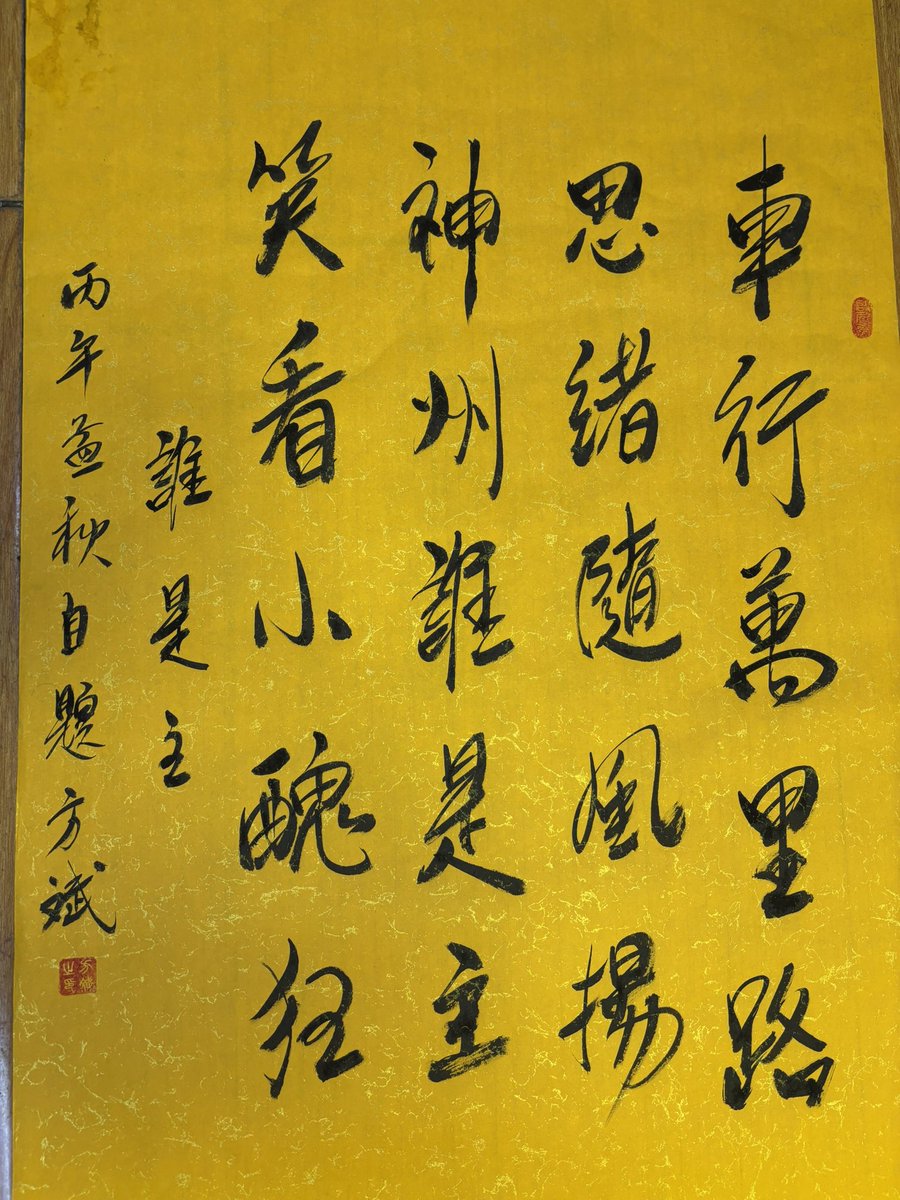 車行萬里路
思緒隨風揚
神州誰是主
笑看小醜狂
誰是主
丙午孟秋自題方斌